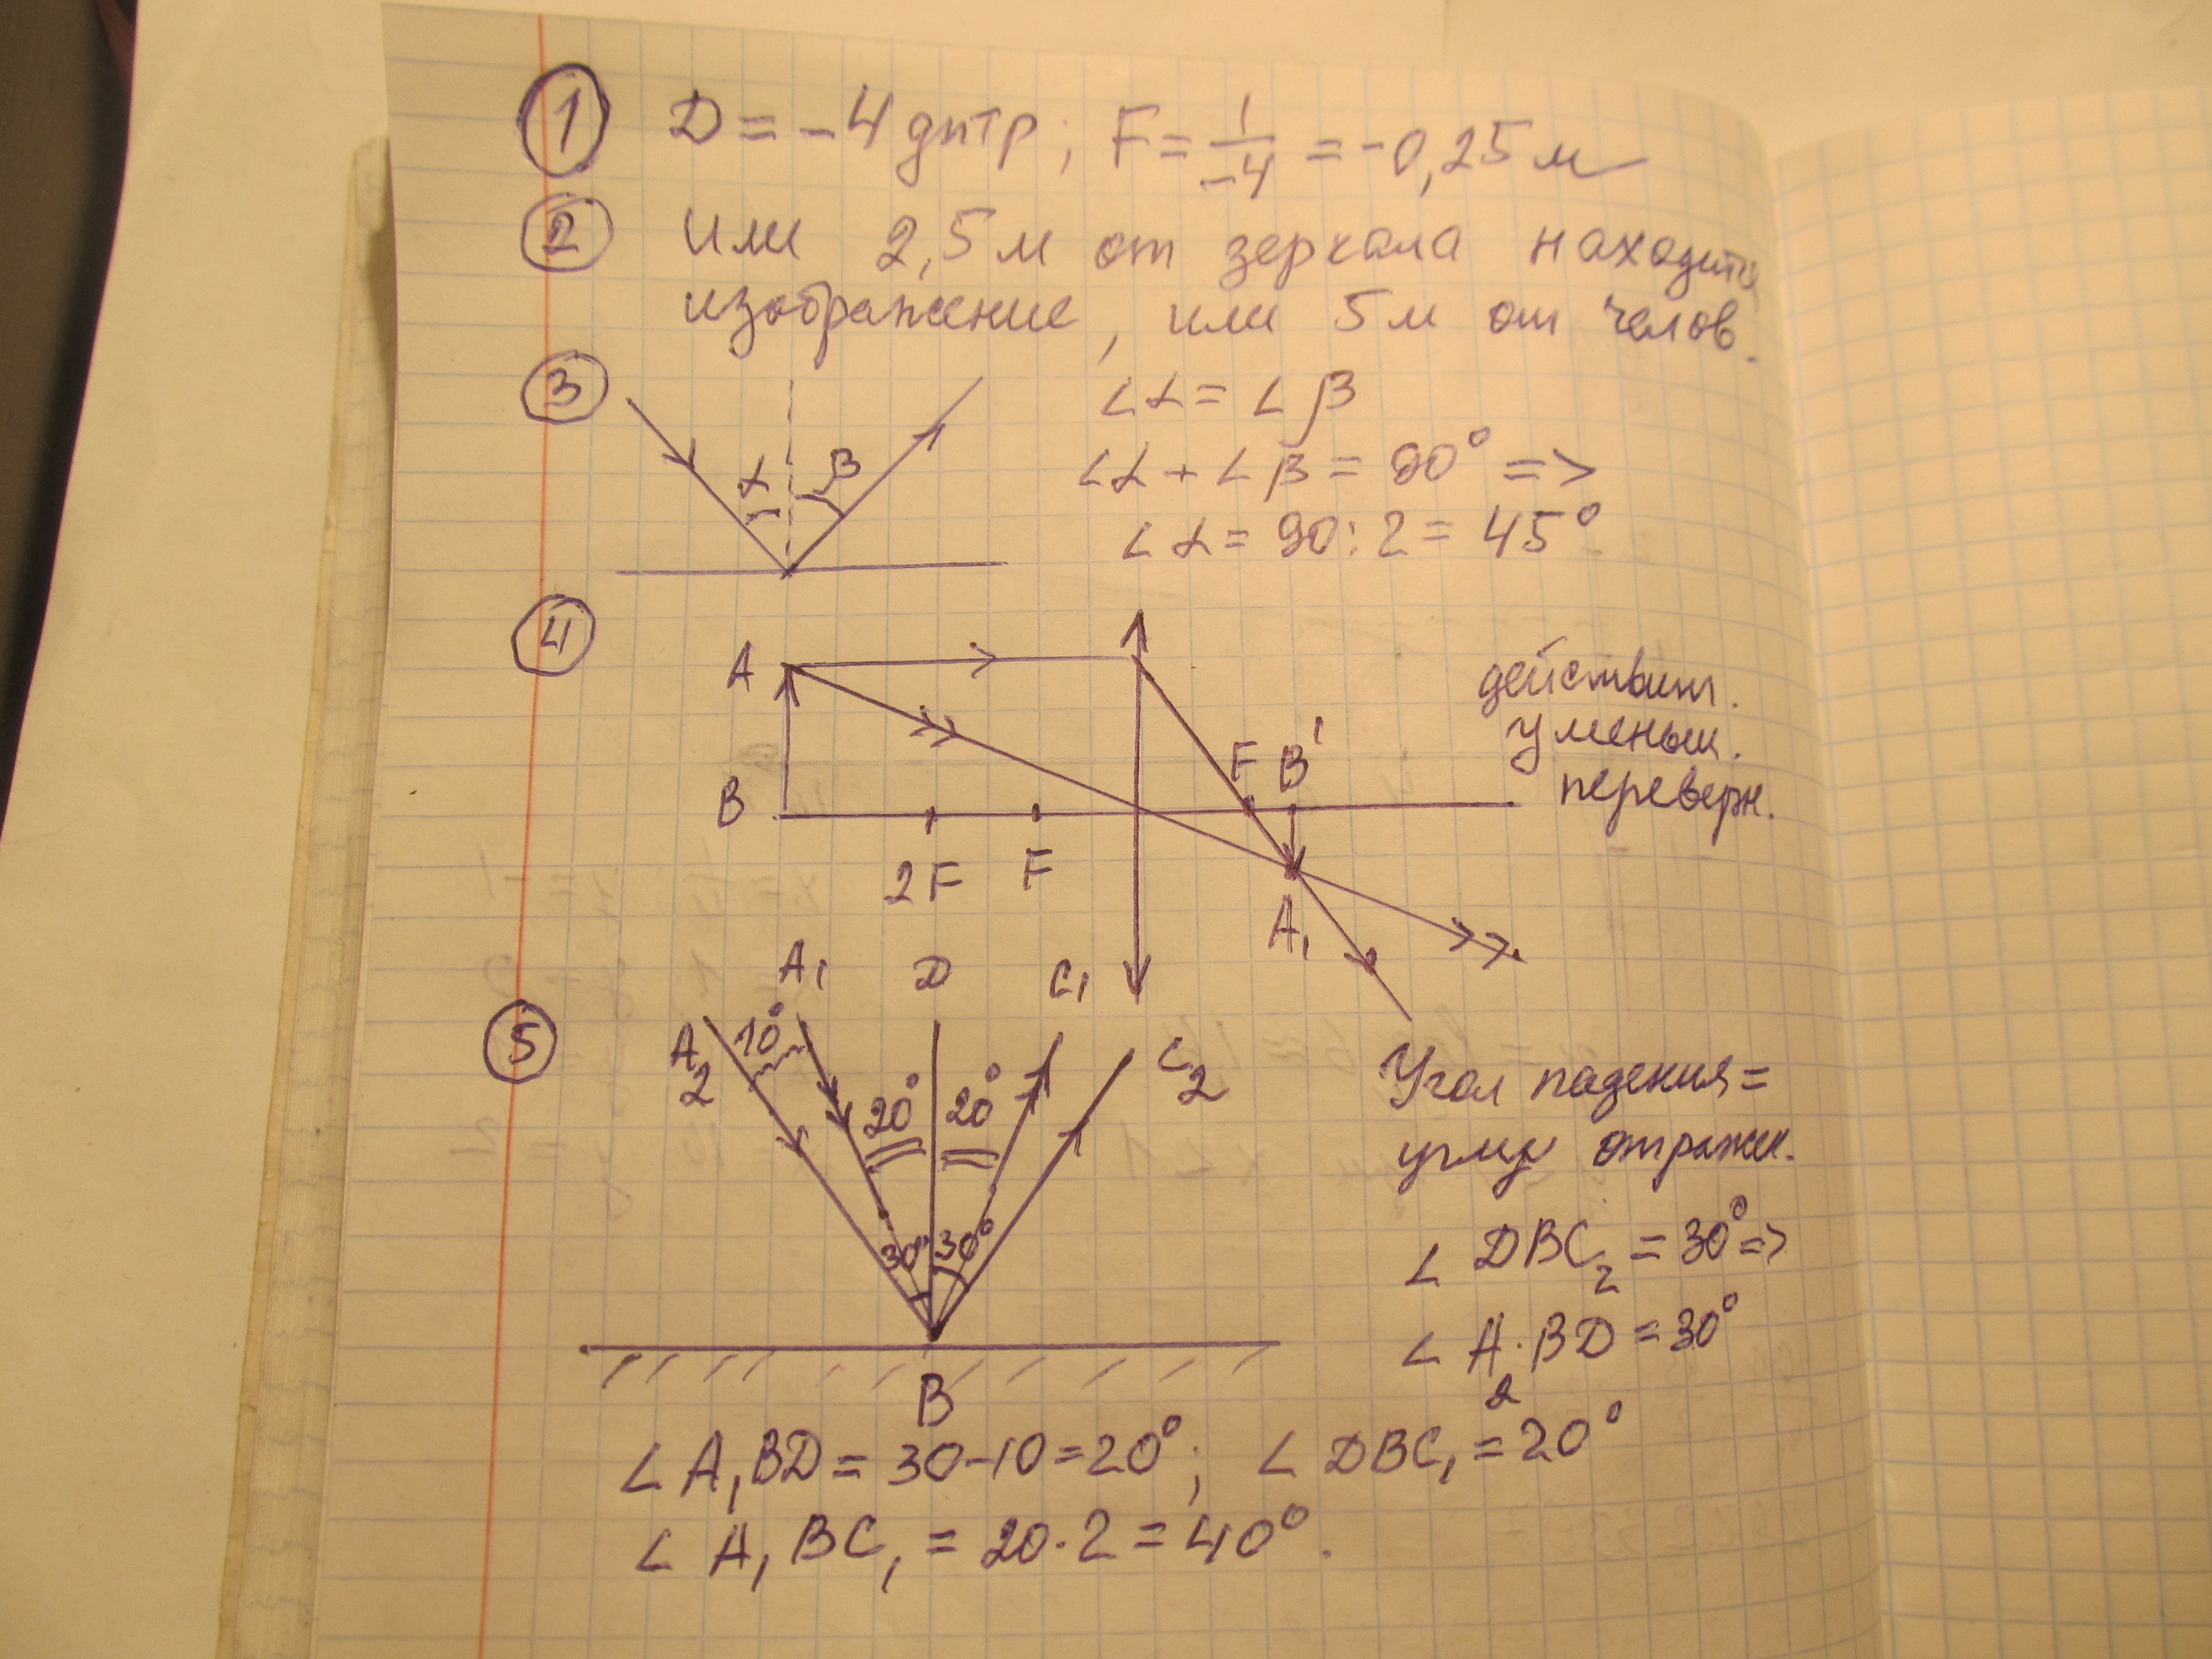 1 D = -4 дптр; F = 1/-4 = -0,25 м
2 или 2,5 м от зеркала находится
изображение, или 5 м от челов.
3 ∠α = ∠β
α β
∠α + ∠β = 90° =>
∠α = 90:2 = 45°
4
A
действит.
уменьш.
переверн.
F B'
B
2F F
A₁
A₁ D C₁
5
A₂ 10° C₂
20° 20°
30° 30°
B
Угол падения =
углу отражен.
∠ DBC₂ = 30° =>
∠ A₂BD = 30°
∠ A₁BD = 30-10 = 20°; ∠ DBC₁ = 20°
∠ A₁BC₁ = 20·2 = 40°.